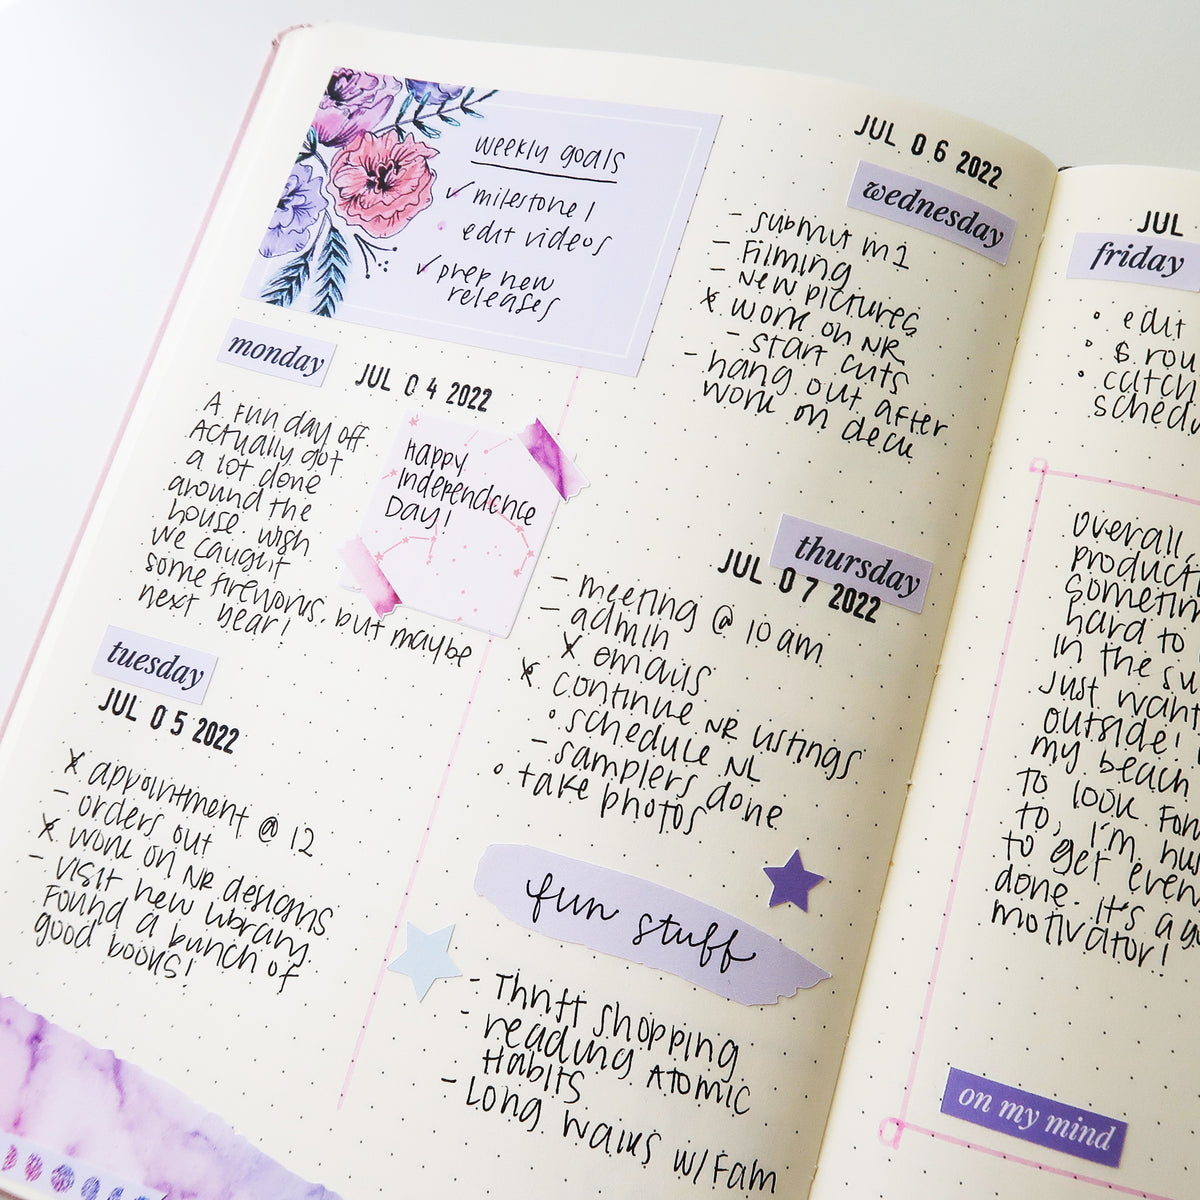 weekly goals
✓ milestone 1
edit videos
✓ prep new
releases
monday
JUL 04 2022
A fun day off.
Actually got
a lot done
around the
house. wish
we caught
some fireworks, but maybe
next year!
Happy
Independence
Day!
tuesday
JUL 05 2022
x appointment @ 12
- orders out
x work on NR designs
- visit new library
Found a bunch of
good books!
JUL 06 2022
wednesday
- submit m1
- Filming
- New pictures
x work on NR
- start cuts
- hang out after
work on deck
thursday
JUL 07 2022
- meeting @ 10 am
- admin
x emails
x continue NR listings
• schedule NL
- samplers done
• take photos
fun stuff
- Thrift shopping
- reading Atomic
Habits
- Long walks w/ Fam
JUL
friday
• edit
• $
• catch
Overall,
hard to
in the
just want
outside!
my beach
to look
to, I'm
to get even
done. It's a
motivator!
on my mind